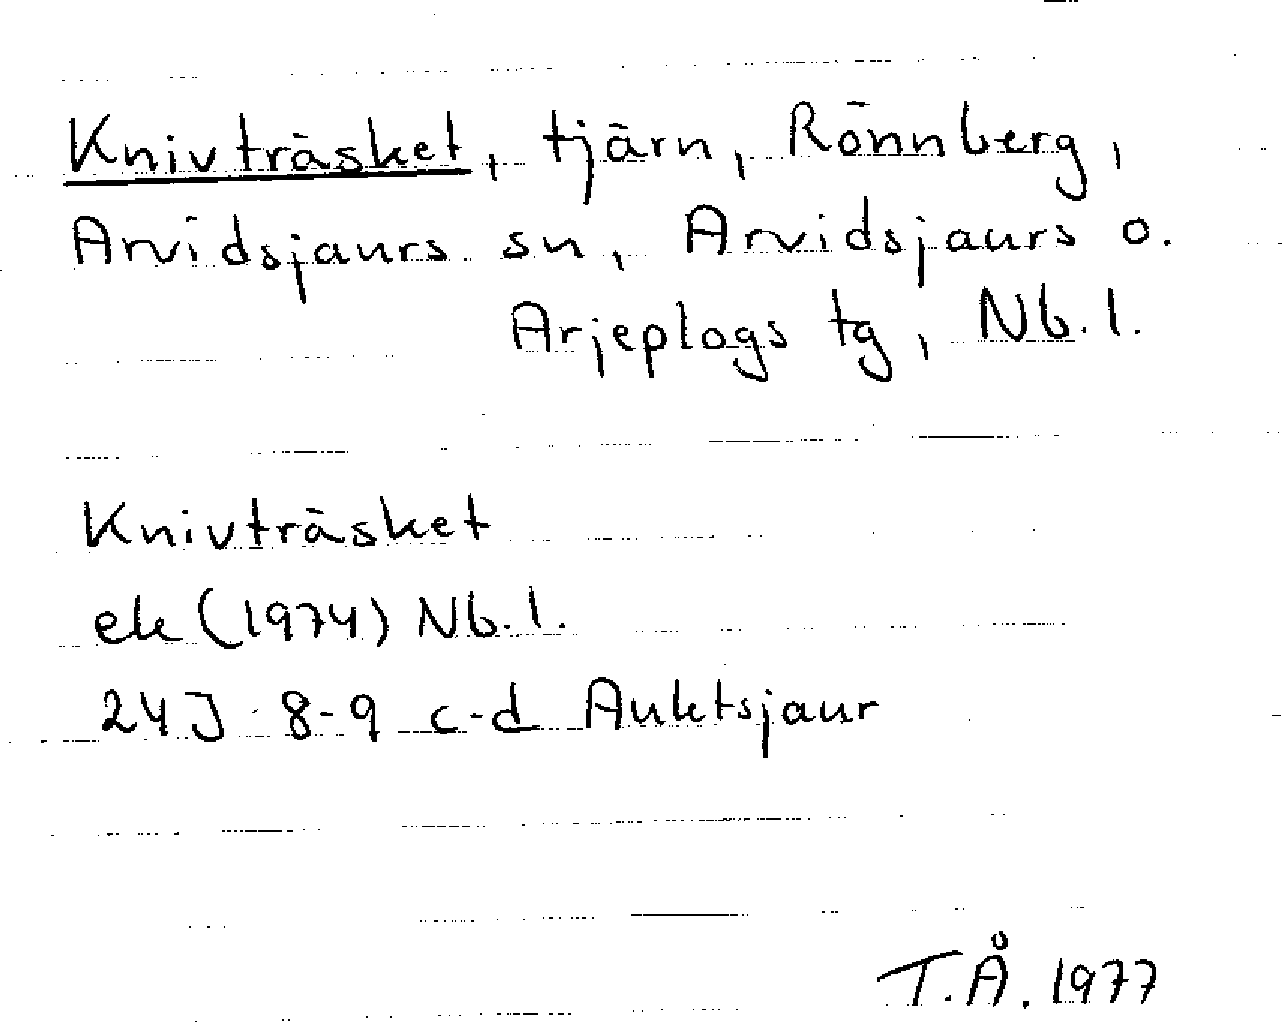 Knivträsket, tjärn, Rönnberg,
Arvidsjaurs sn, Arvidsjaurs o.
Arjeplogs tg, Nb. l.
Knivträsket
ek (1974) Nb. l.
24J 8-9 c-d Auktsjaur
T.Å. 1977